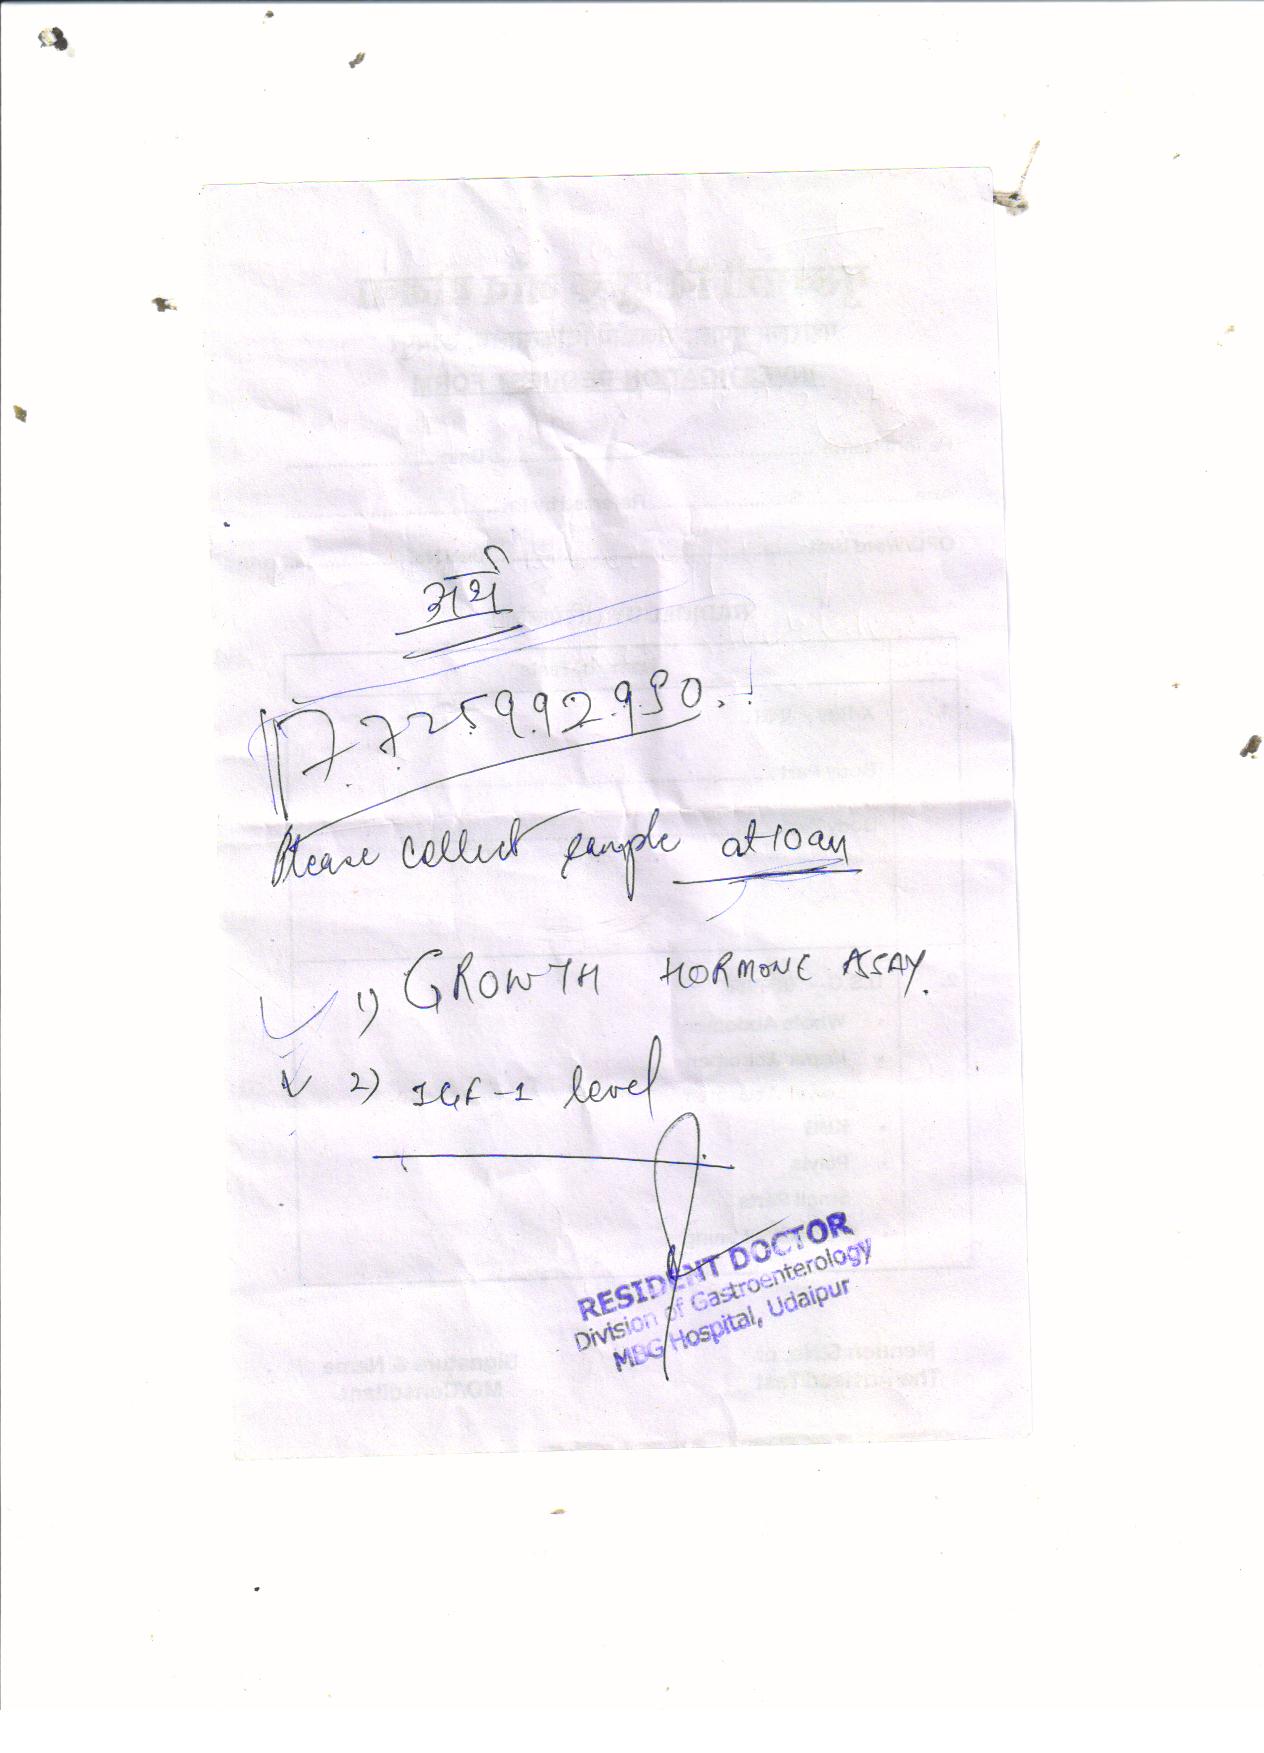 अर्थ
7725992990.
Please collect sample at 10 am
1) GROWTH HORMONE ASSAY.
2) IGF-1 level
RESIDENT DOCTOR
Division of Gastroenterology
MBG Hospital, Udaipur